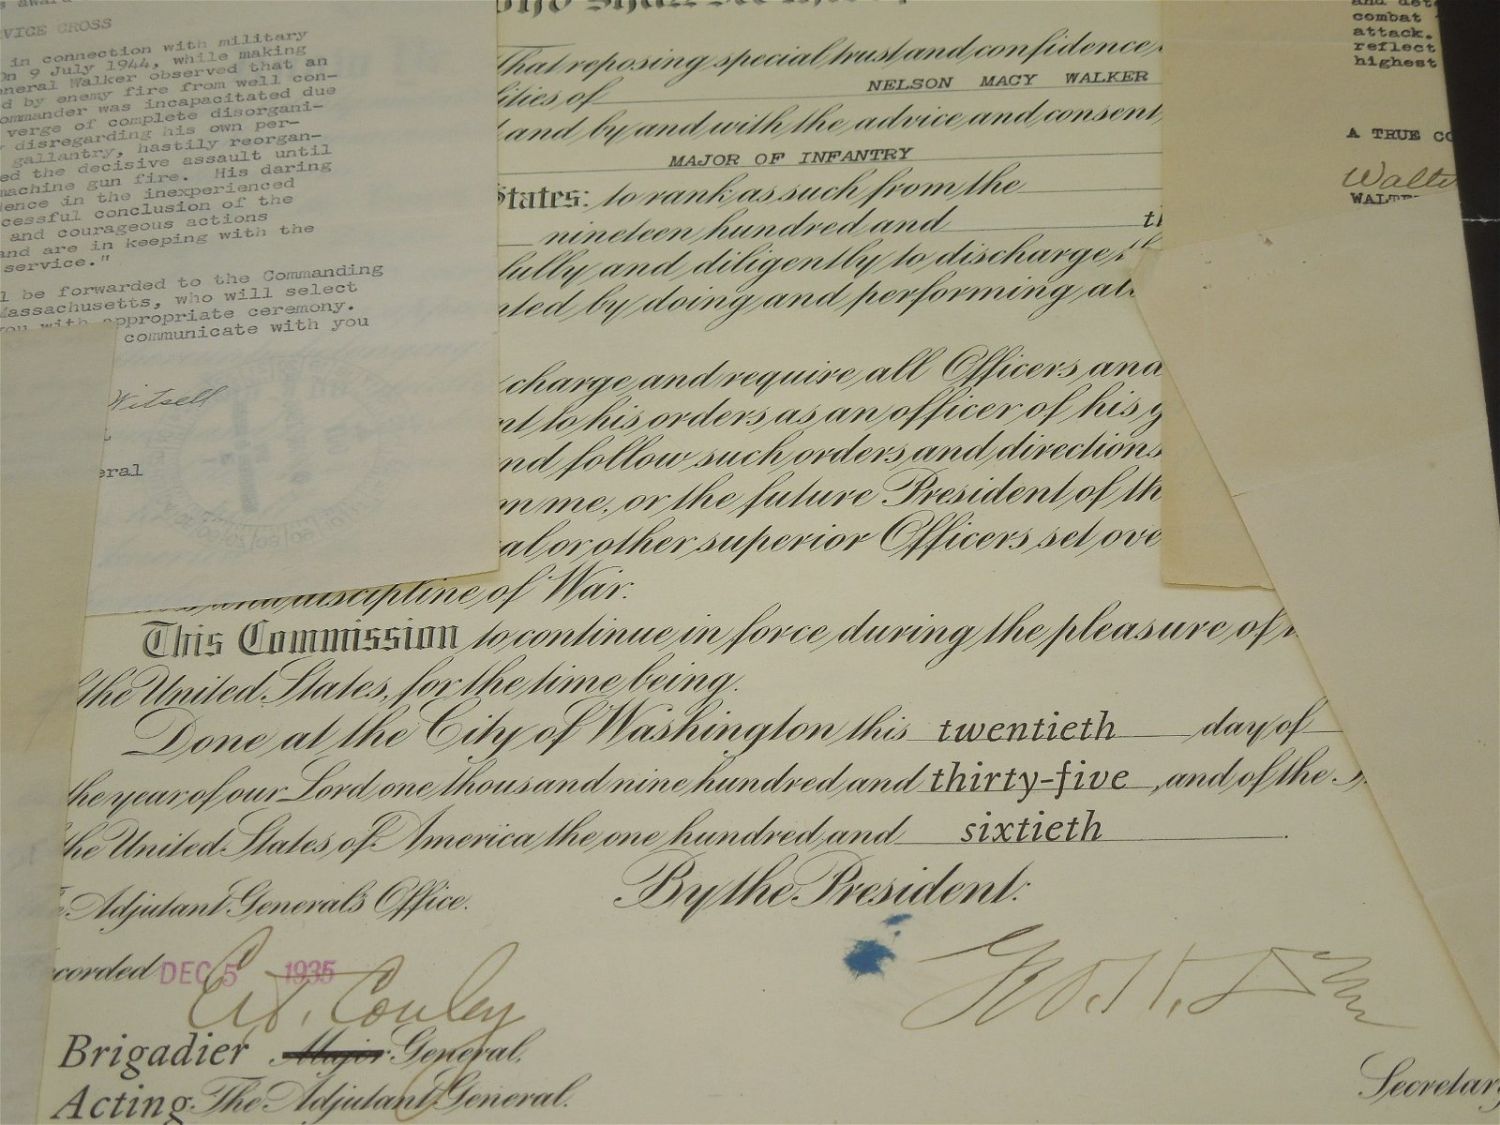 VICE CROSS
in connection with military
On 9 July 1944, while making
neral Walker observed that an
d by enemy fire from well con-
ommander was incapacitated due
verge of complete disorgani-
disregarding his own per-
gallantry, hastily reorgan-
ed the decisive assault until
machine gun fire. His daring
ence in the inexperienced
cessful conclusion of the
and courageous actions
and are in keeping with the
service."
l be forwarded to the Commanding
Massachusetts, who will select
you with appropriate ceremony.
communicate with you
Witsell
eral
That reposing special trust and confidence
lities of NELSON MACY WALKER
and by and with the advice and consent
MAJOR OF INFANTRY
States: to rank as such from the
nineteen hundred and th
fully and diligently to discharge th
nted by doing and performing all
charge and require all Officers and
nt to his orders as an officer of his g
nd follow such orders and directions
m me, or the future President of th
al or other superior Officers set ove
and discipline of War.
This Commission to continue in force during the pleasure of
the United States, for the time being.
Done at the City of Washington this twentieth day of
the year of our Lord one thousand nine hundred and thirty-five, and of the
the United States of America the one hundred and sixtieth.
By the President:
Adjutant General's Office.
corded DEC 5 1935
E. T. Conley
Brigadier Major General.
Acting The Adjutant General.
Secretary
and det
combat
attack.
reflect
highest
A TRUE CO
Walte
WALTE